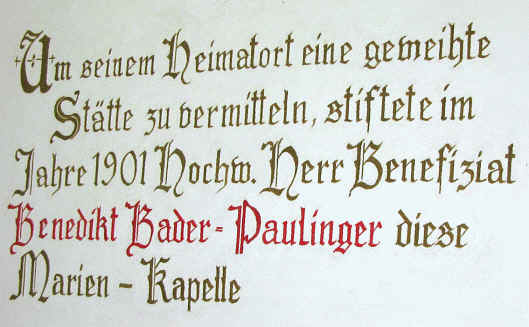 Um seinem Heimatort eine geweihte
Stätte zu vermitteln, stiftete im
Jahre 1901 Hochw. Herr Benefiziat
Benedikt Bader-Paulinger diese
Marien - Kapelle